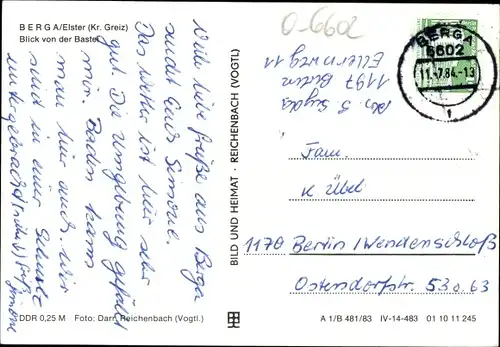 BERGA/Elster (Kr. Greiz)
Blick von der Bastei
O-6602
BERGA
6602
11.-7.84.-13
1
Viele liebe Grüße aus Berga
sendet Euch Simone.
Das Wetter ist hier sehr
gut. Die Umgebung gefällt
mir. Baden kann
man hier auch. Wir
sind in einer Schule
untergebracht
Simone
Abs. S.
1197 Berlin
Ellernweg 11
BILD UND HEIMAT · REICHENBACH (VOGTL)
Fam.
K Übel
1170 Berlin/Wendenschloß
Ostendorfstr. 53
DDR 0,25 M Foto: Darr, Reichenbach (Vogtl.)
A 1/B 481/83 IV-14-483 01 10 11 245